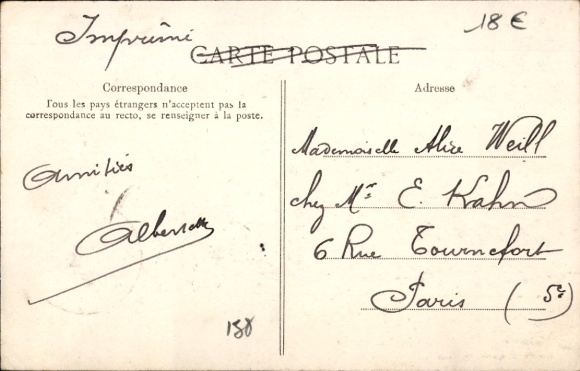 Imprimé
18 €
CARTE POSTALE
Correspondance
Tous les pays étrangers n'acceptent pas la
correspondance au recto, se renseigner à la poste.
Amitiés
Albertette
158
Adresse
Mademoiselle Alice Weill
chez Mr E. Kahn
6 Rue Tournefort
Paris (5e)